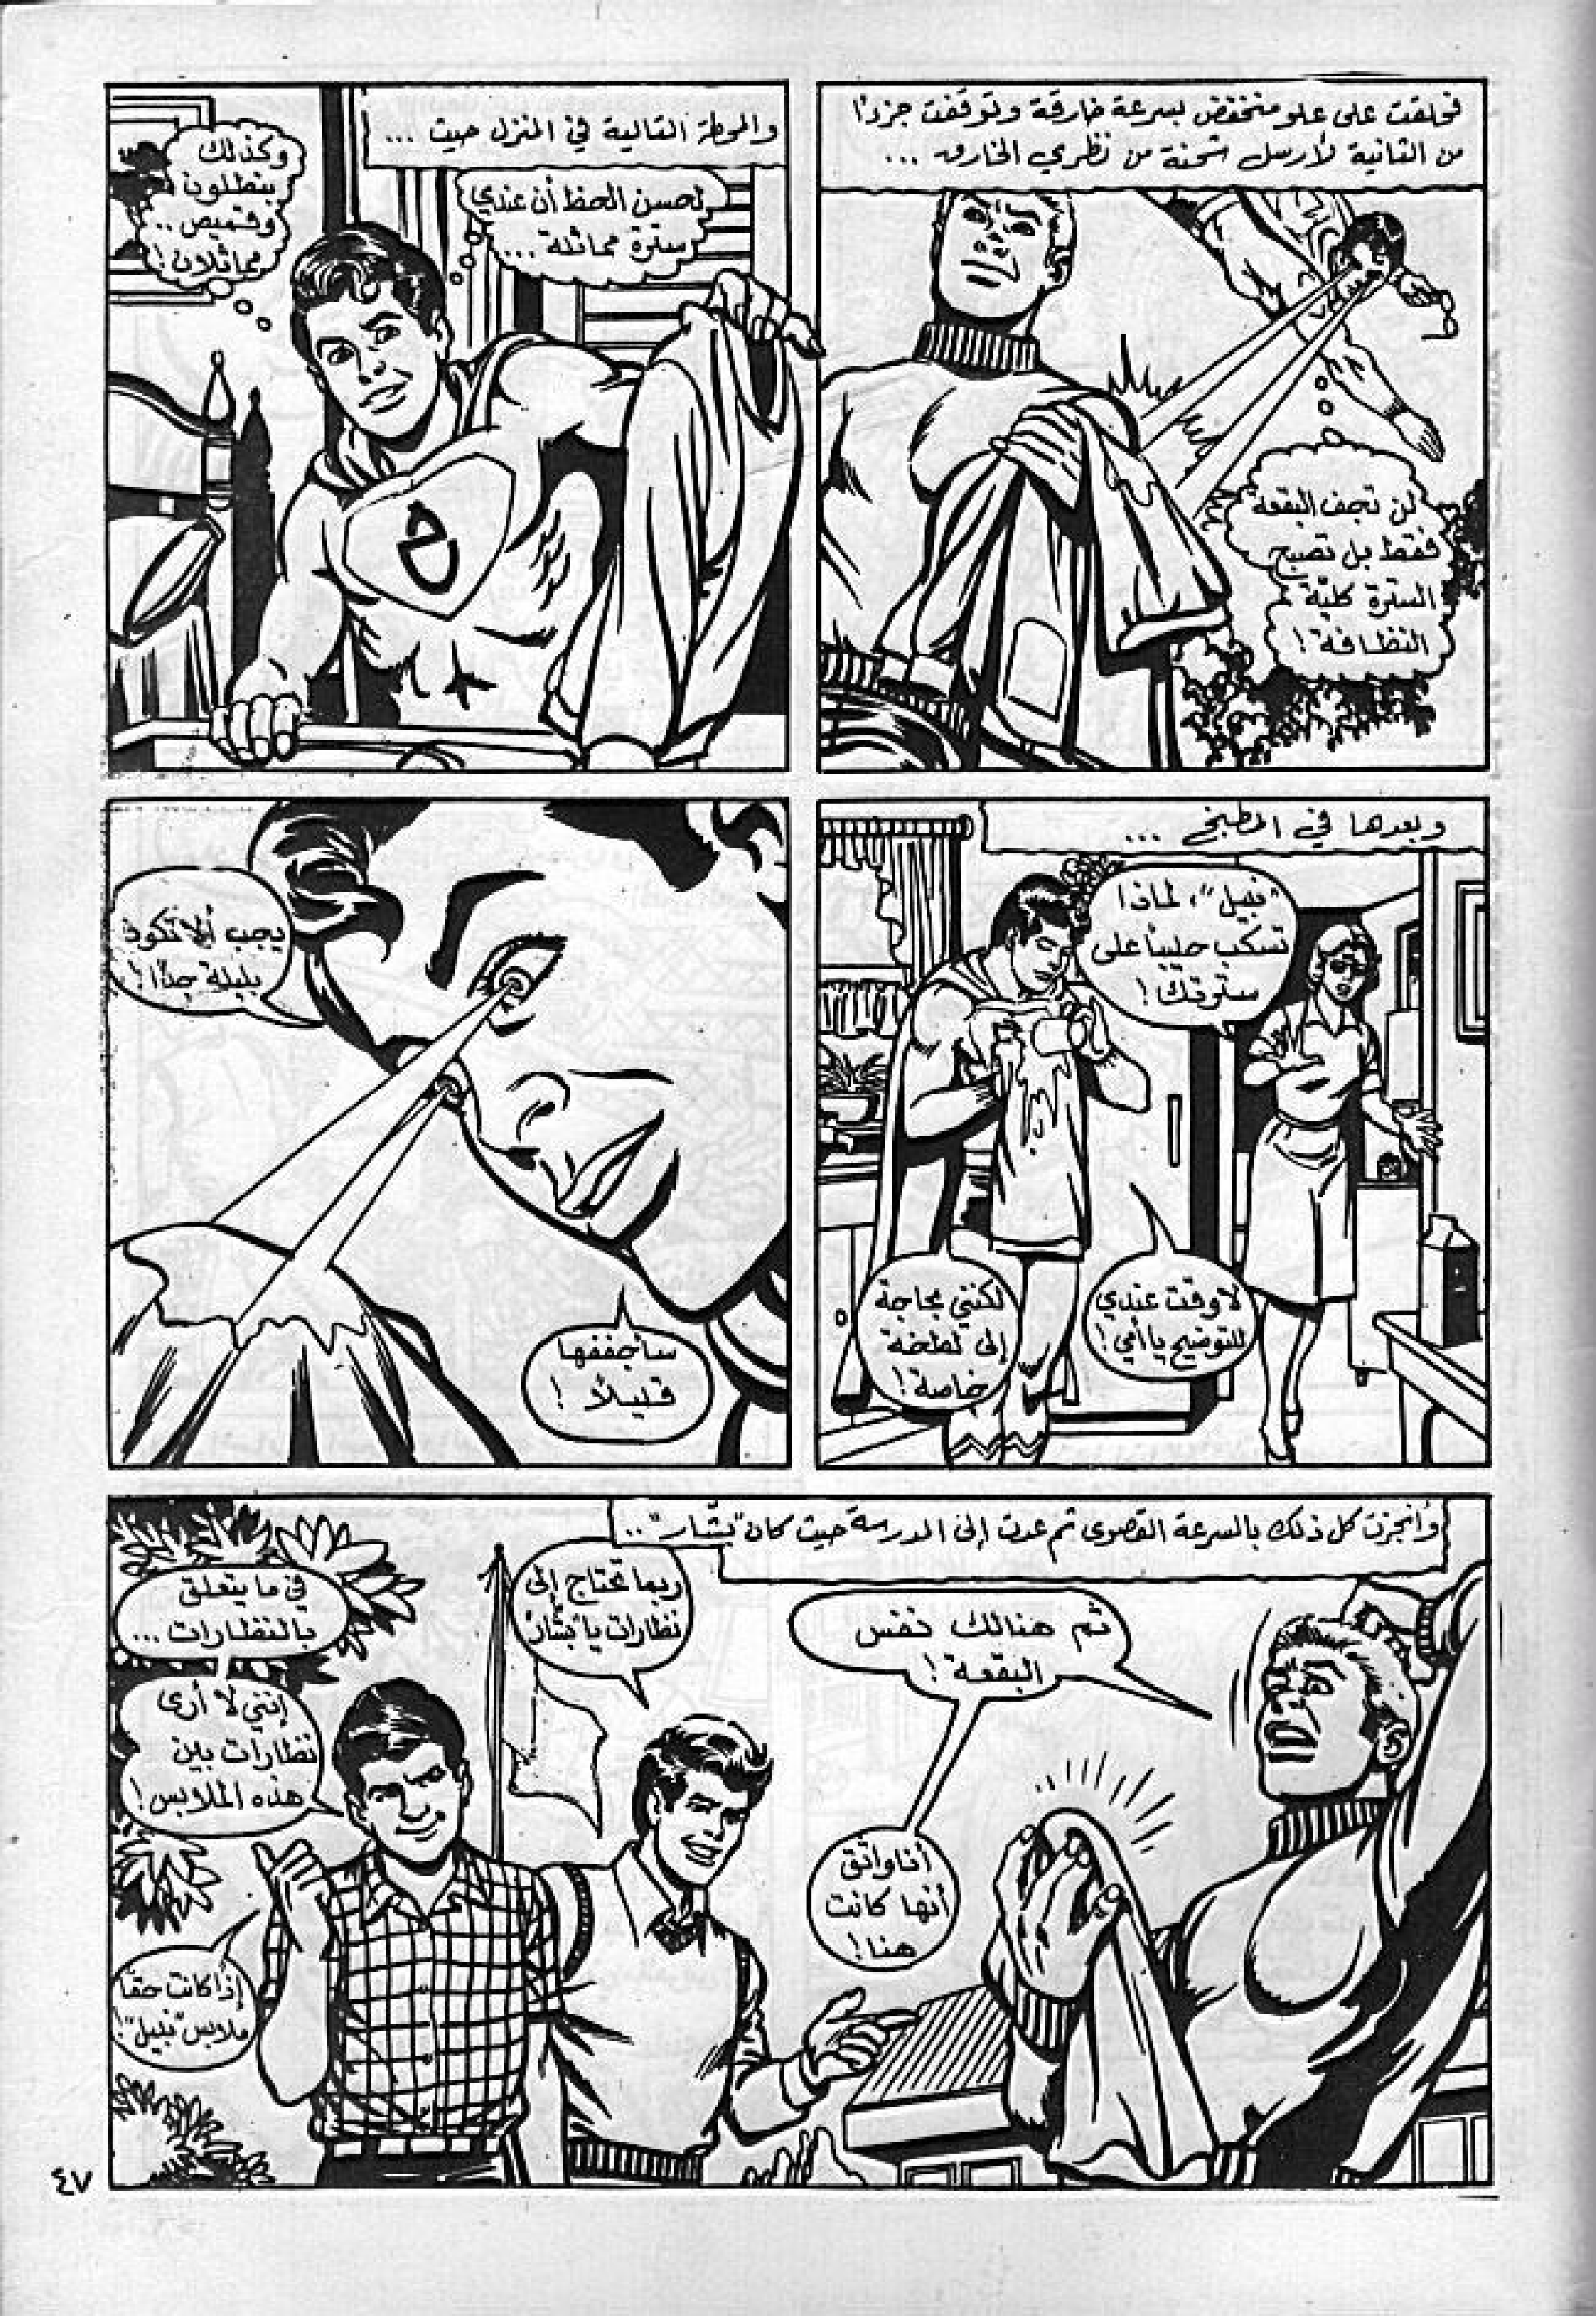 فحلقت على علو منخفض بسرعة خارقة وتوقفت جزءًا
من الثانية لأرسل شحنة من نظري الخارق ...
لن تجف البقعة
فقط بل تصبح
السترة كليّة
النظافة!
والمحطة التالية في المنزل حيث ...
لحسن الحظ أن عندي
سترة مماثلة ...
وكذلك
بنطلون
وقميص ..
مماثلان!
وبعدها في المطبخ ...
"نبيل"، لماذا
تسكب حليبًا على
سترتك!
لا وقت عندي
للتوضيح يا أمي!
لكنني بحاجة
إلى لطخة
خاصة!
يجب ألا تكون
بليلة جدًا!
سأجففها
قليلًا!
وأنجزت كل ذلك بالسرعة القصوى ثم عدت إلى المدرسة حيث كان "بشّار" ..
ثم هنالك نفس
البقعة!
أنا واثق
أنها كانت
هنا!
ربما تحتاج إلى
نظارات يا "بشّار"
في ما يتعلق
بالنظارات ...
إنني لا أرى
نظارات بين
هذه الملابس!
إذا كانت حقًا
ملابس "نبيل"!
٤٧